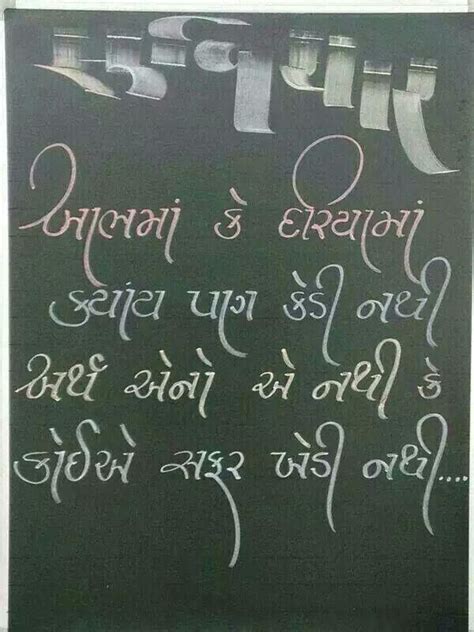 આભમાં કે દરિયામાં
ક્યાંય પગ કેડી નથી
અર્થ એનો એ નથી કે
કોઈએ સફર ખેડી નથી....